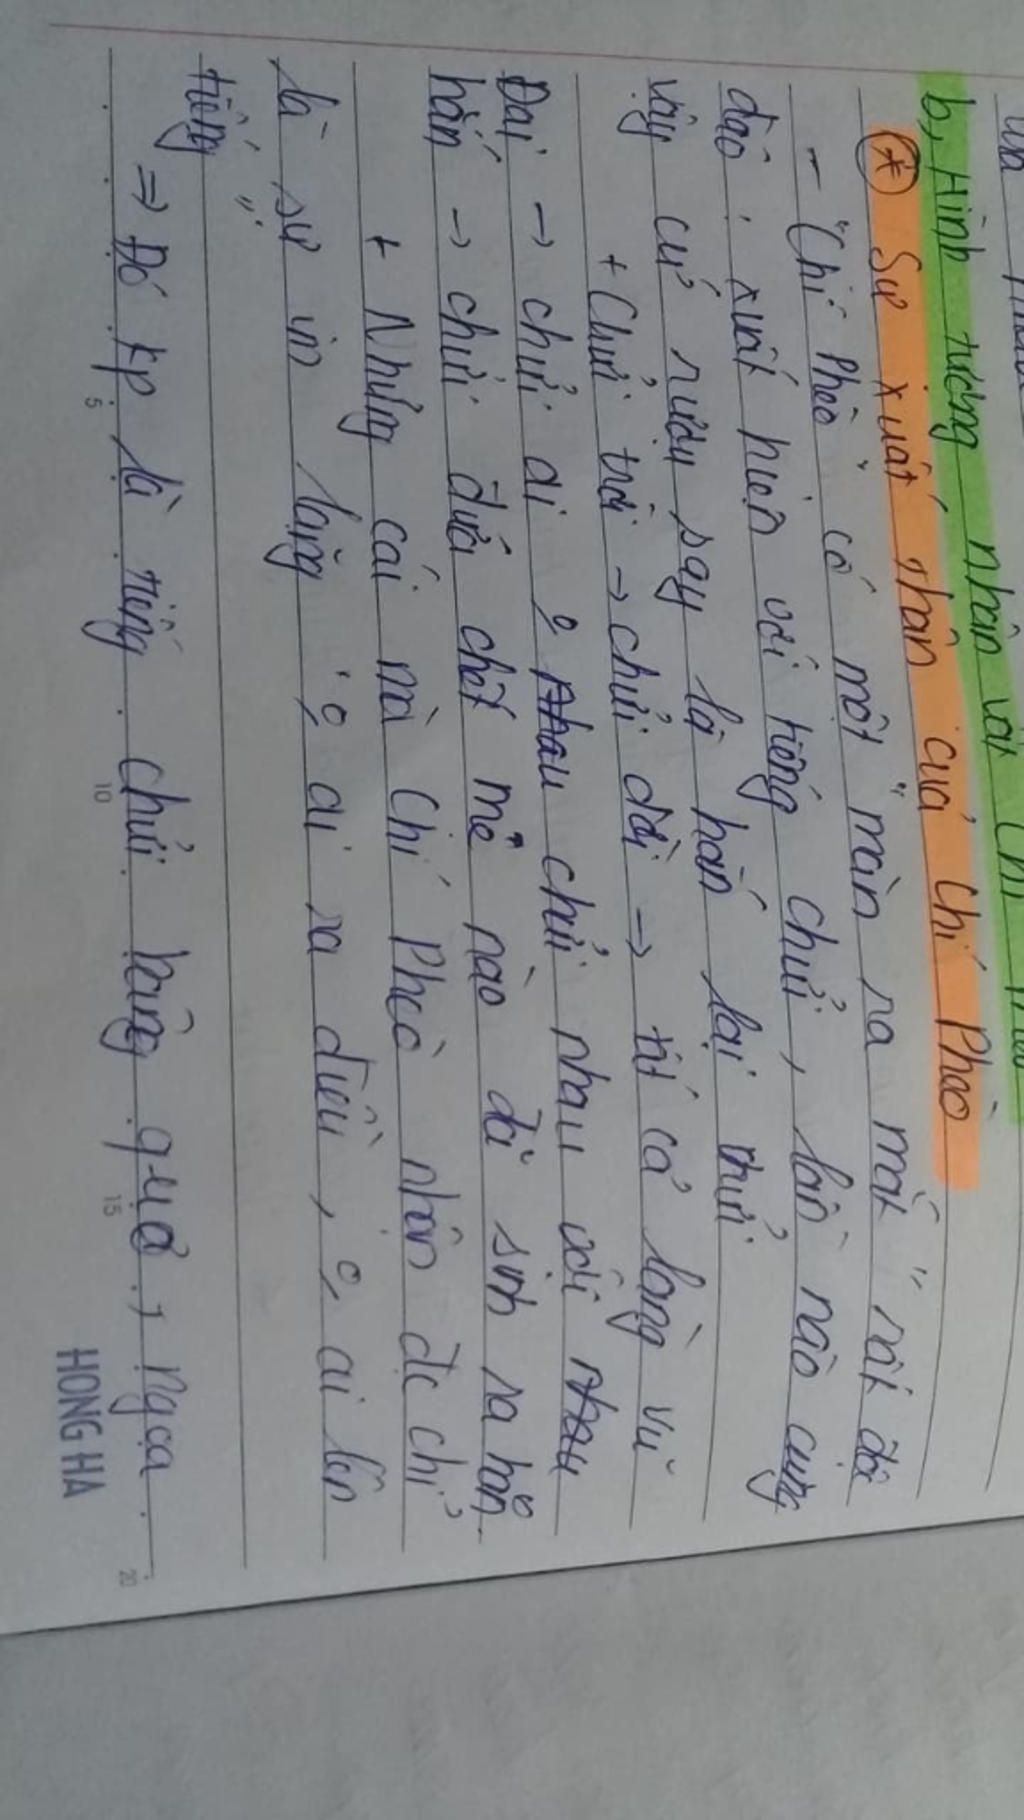 b, Hình tượng nhân vật Chí Phèo
(*) Sự xuất thân của Chí Phèo
- "Chí Phèo" có một "màn ra mắt" rất độc
đáo, xuất hiện với tiếng chửi, lần nào cũng
vậy cứ rượu say là hắn lại chửi
+ Chửi trời -> chửi đời -> tất cả làng Vũ
Đại -> chửi ai o chau chửi nhau với
hắn -> chửi đứa chết mẹ nào đã sinh ra hắn.
+ Những cái mà Chí Phèo nhận đc chỉ
là sự im lặng "o ai ra điều, o ai lên
tiếng".
=> Đó kp là tiếng chửi bâng quơ, ngoa
5 10 15 20
HONG HA